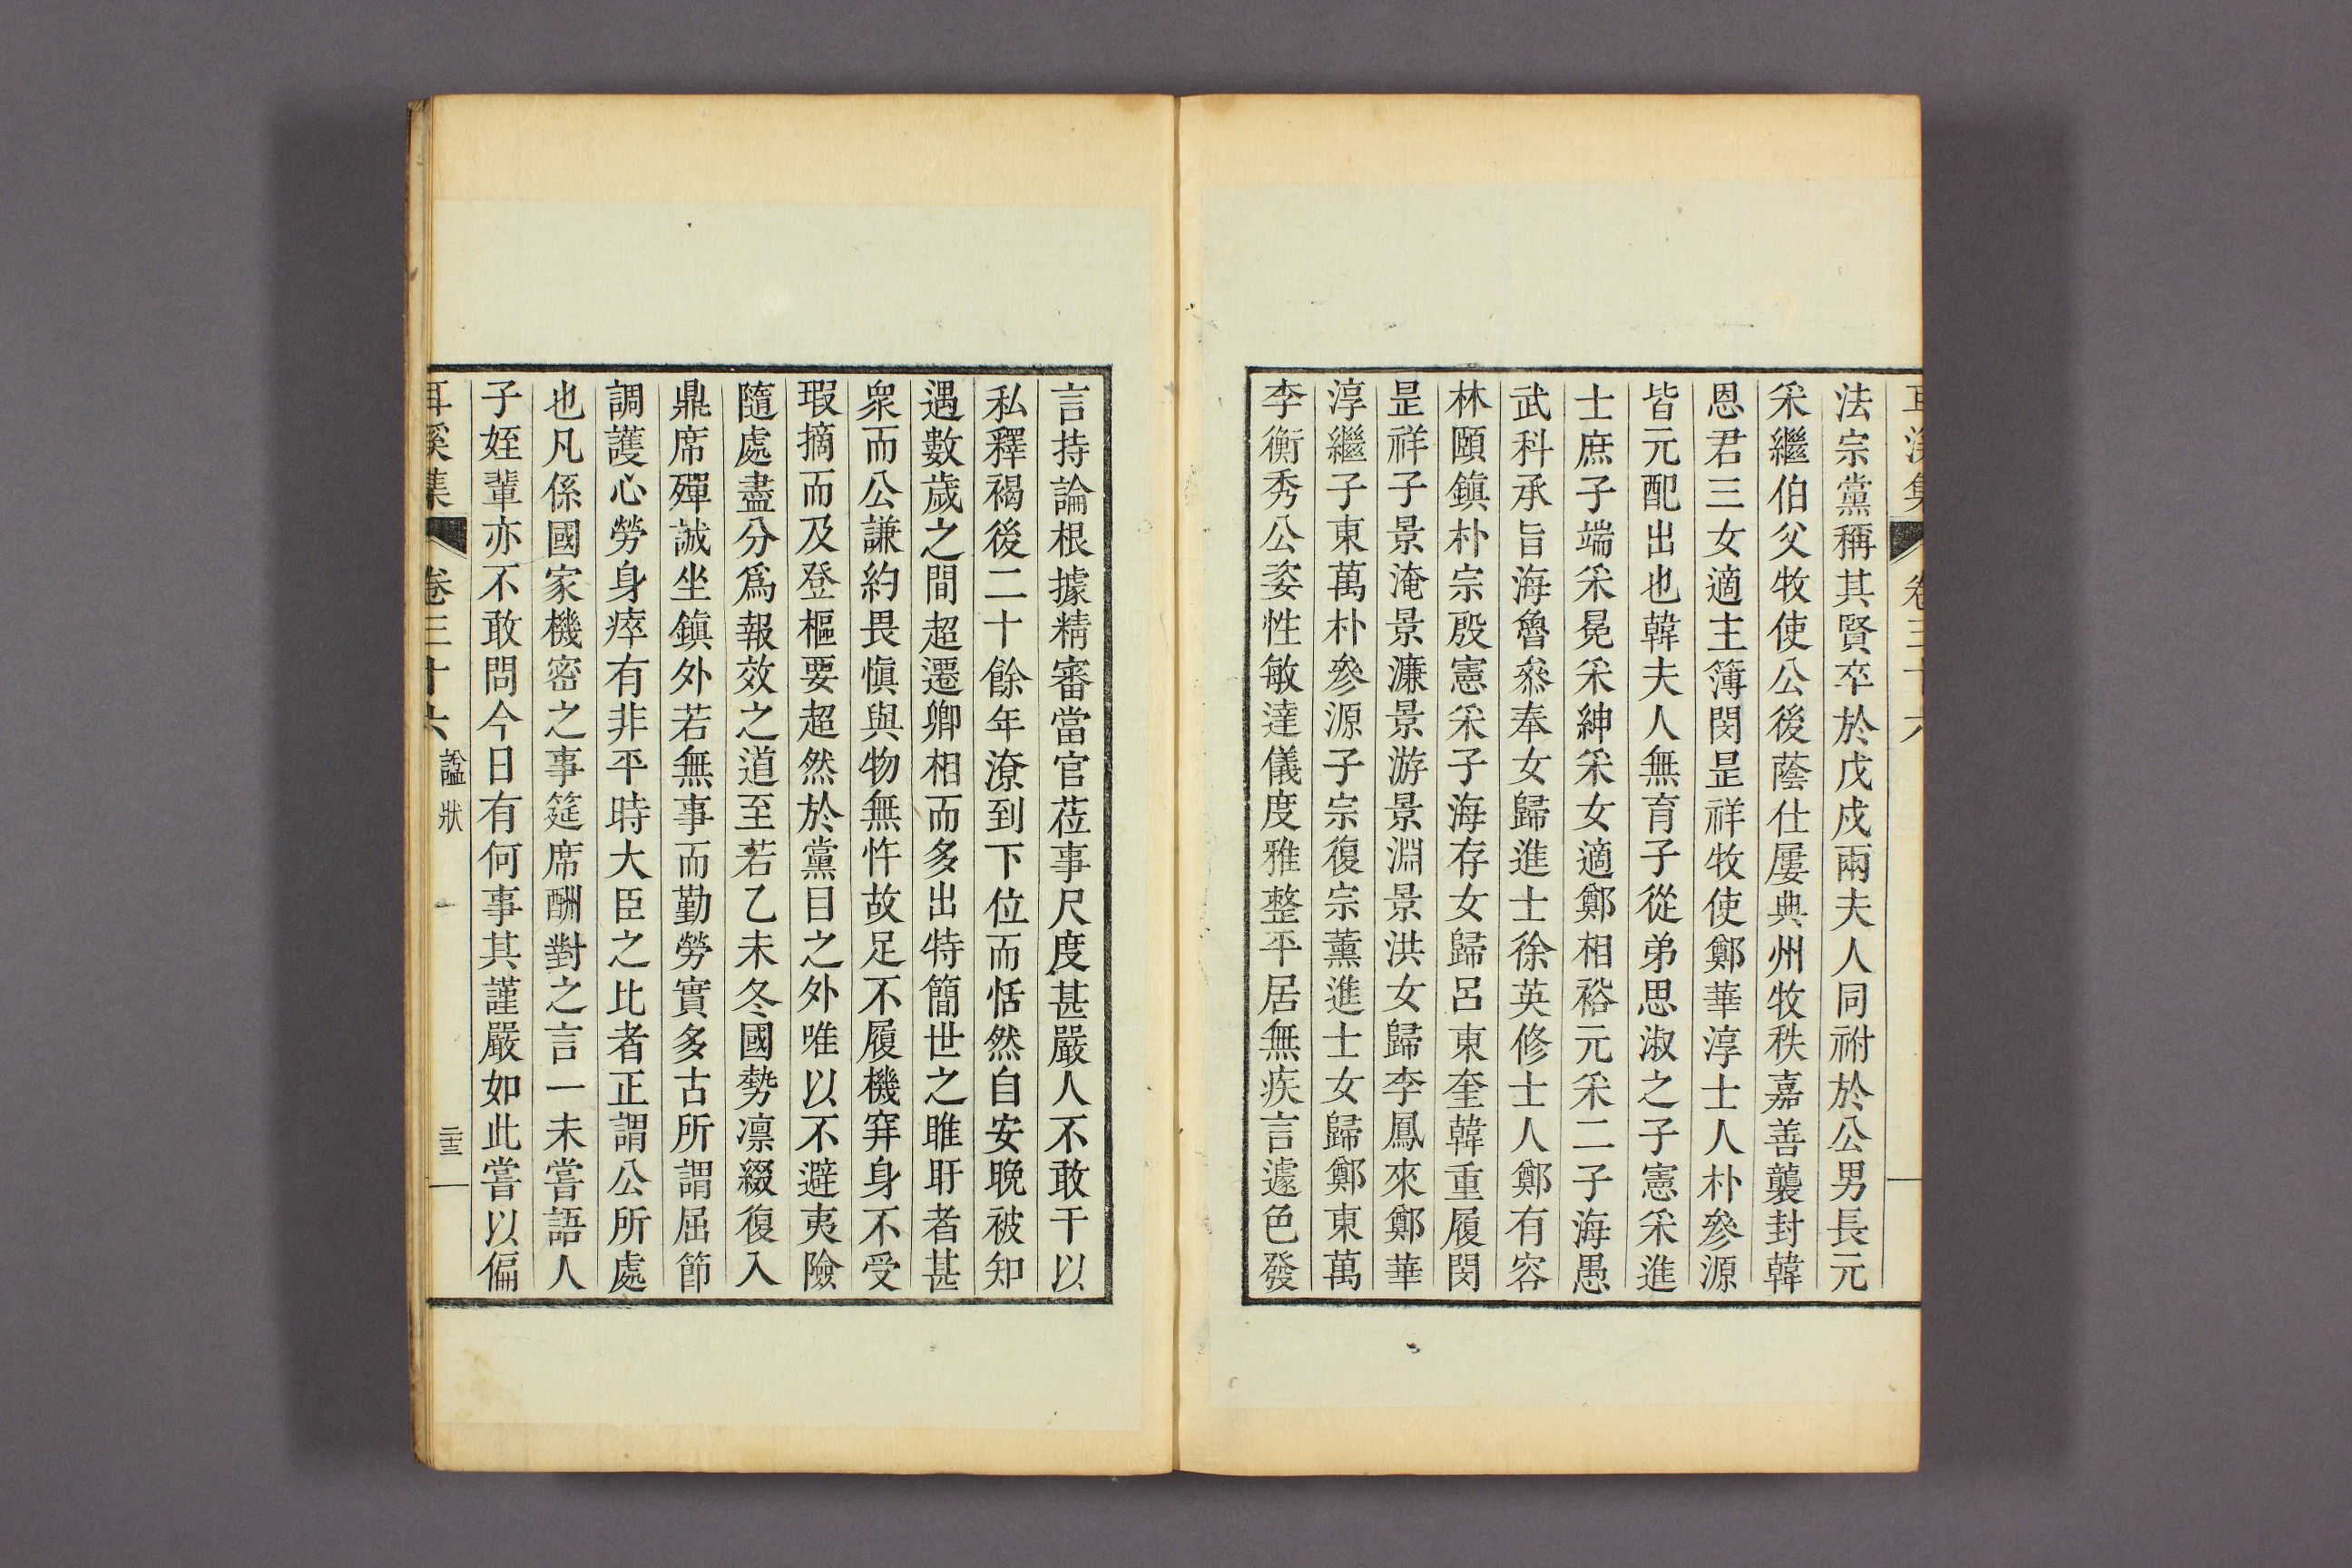 耳溪集 卷三十六
法宗黨稱其賢卒於戊戌兩夫人同祔於公男長元
采繼伯父牧使公後蔭仕屢典州牧秩嘉善襲封韓
恩君三女適主簿閔昰祥牧使鄭華淳士人朴參源
皆元配出也韓夫人無育子從弟思淑之子憲采進
士庶子端采晃采紳采女適鄭相裕元采二子海愚
武科承旨海魯叅奉女歸進士徐英修士人鄭有容
林頤鎮朴宗殷憲采子海存女歸呂東奎韓重履閔
昰祥子景淹景濂景游景淵景洪女歸李鳳來鄭華
淳繼子東萬朴參源子宗復宗薰進士女歸鄭東萬
李衡秀公姿性敏達儀度雅整平居無疾言遽色發
言持論根據精審當官莅事尺度甚嚴人不敢干以
私釋褐後二十餘年潦到下位而恬然自安晚被知
遇數歲之間超遷卿相而多出特簡世之睢盱者甚
衆而公謙約畏愼與物無忤故足不履機穽身不受
瑕摘而及登樞要超然於黨目之外唯以不避夷險
隨處盡分爲報效之道至若乙未冬國勢凛綴復入
鼎席殫誠坐鎮外若無事而勤勞實多古所謂屈節
調護心勞身瘁有非平時大臣之比者正謂公所處
也凡係國家機密之事筵席酬對之言一未嘗語人
子姪輩亦不敢問今日有何事其謹嚴如此嘗以偏
耳溪集 卷三十六 諡狀 二十三